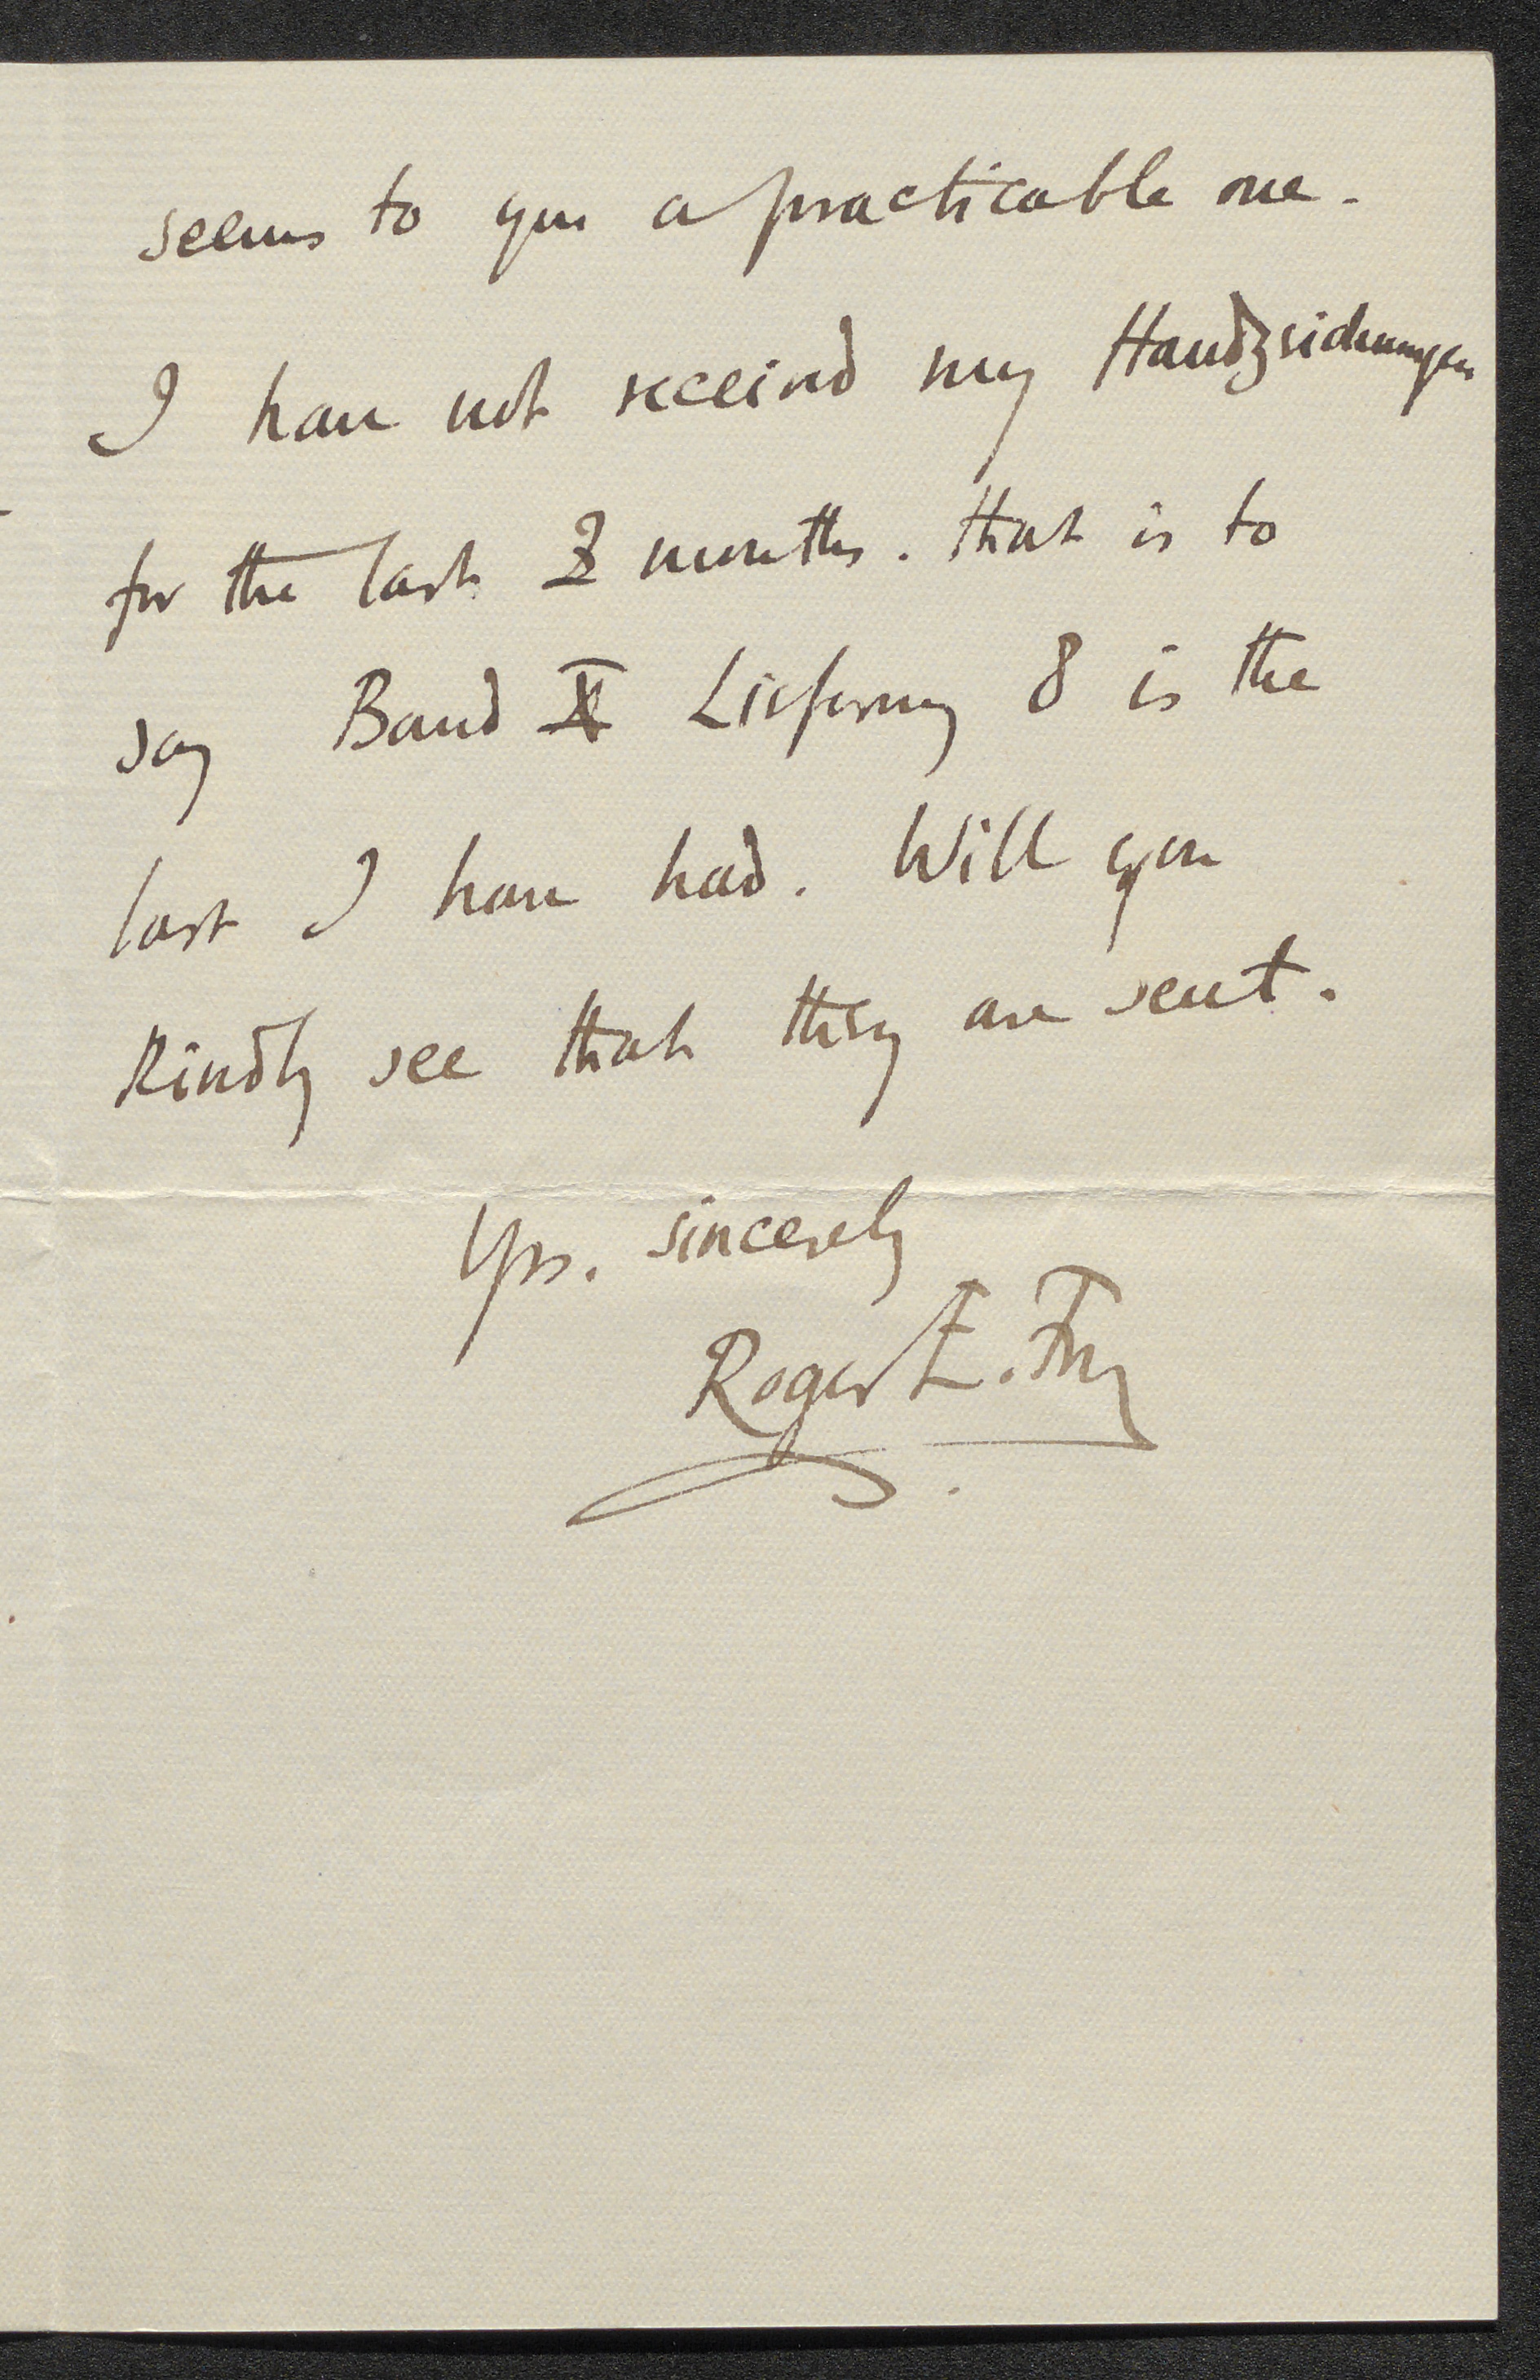 seems to you a practicable one.
I have not received my Handzeichnungen
for the last months. that is to
say Band X Lieferung 8 is the
last I have had. Will you
kindly see that they are sent.
Yrs. sincerely
Roger E. Fry